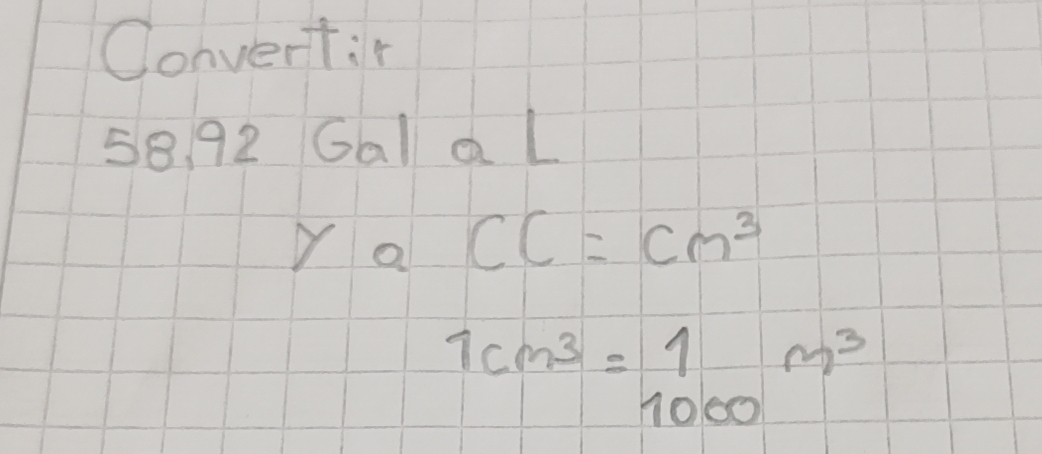 Convertir
58,92 Gal a L
y a CC = Cm³
1cm³ = 1 m³
1000